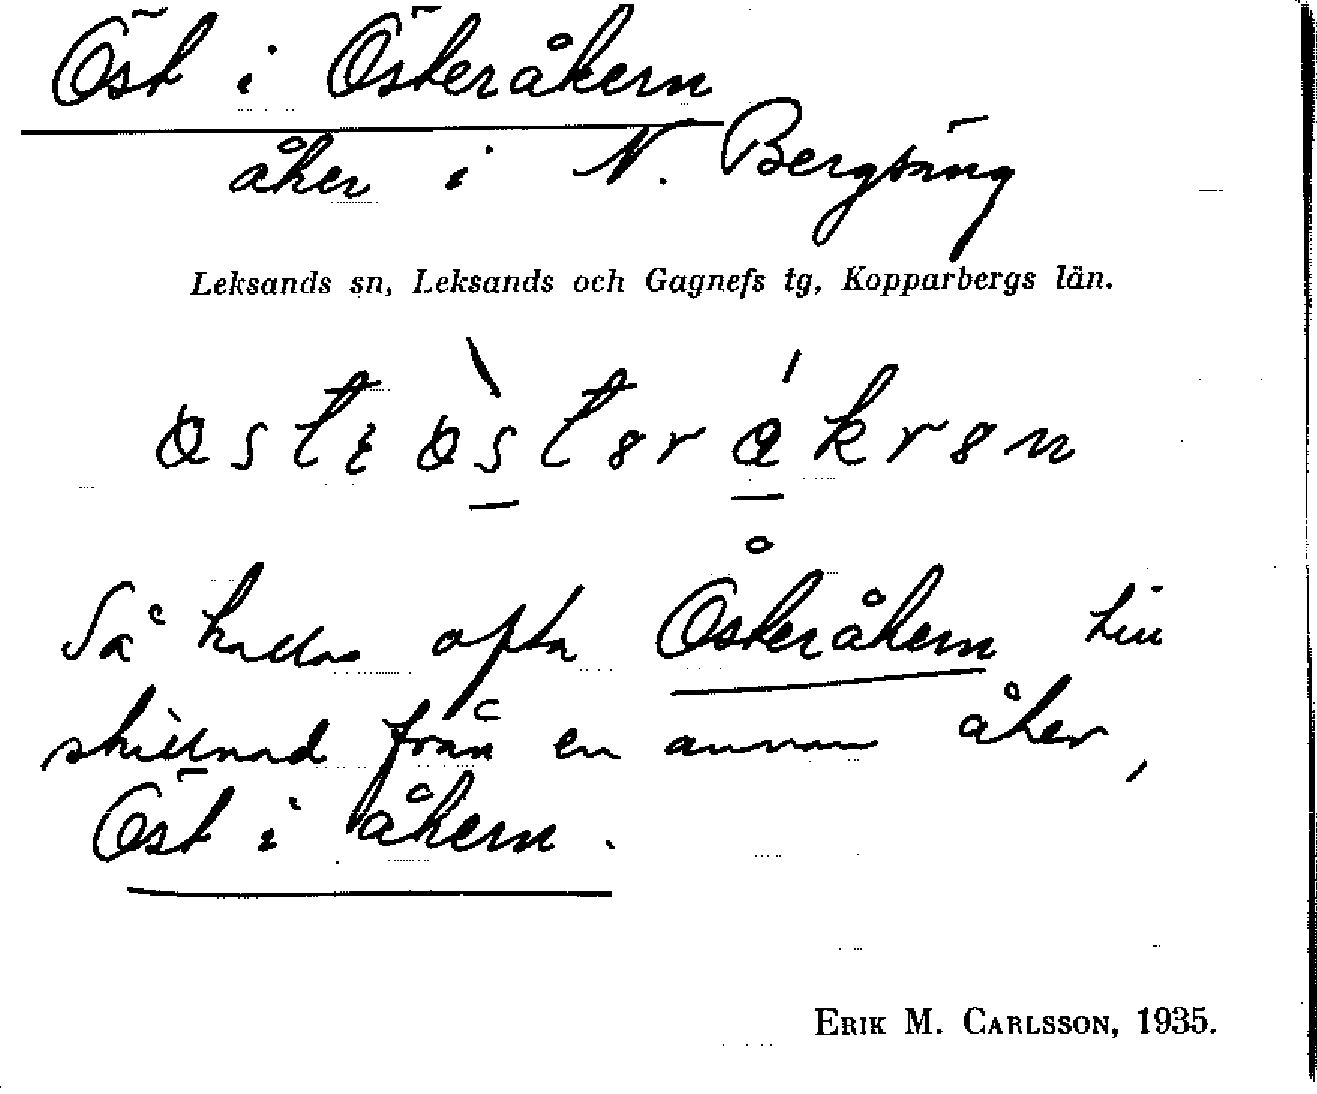 Öst i Österåkern
åker i N. Bergsäng
Leksands sn, Leksands och Gagnefs tg, Kopparbergs län.
Så kallas ofta Österåkern till
skillnad från en annan åker,
Öst i åkern.
ERIK M. CARLSSON, 1935.